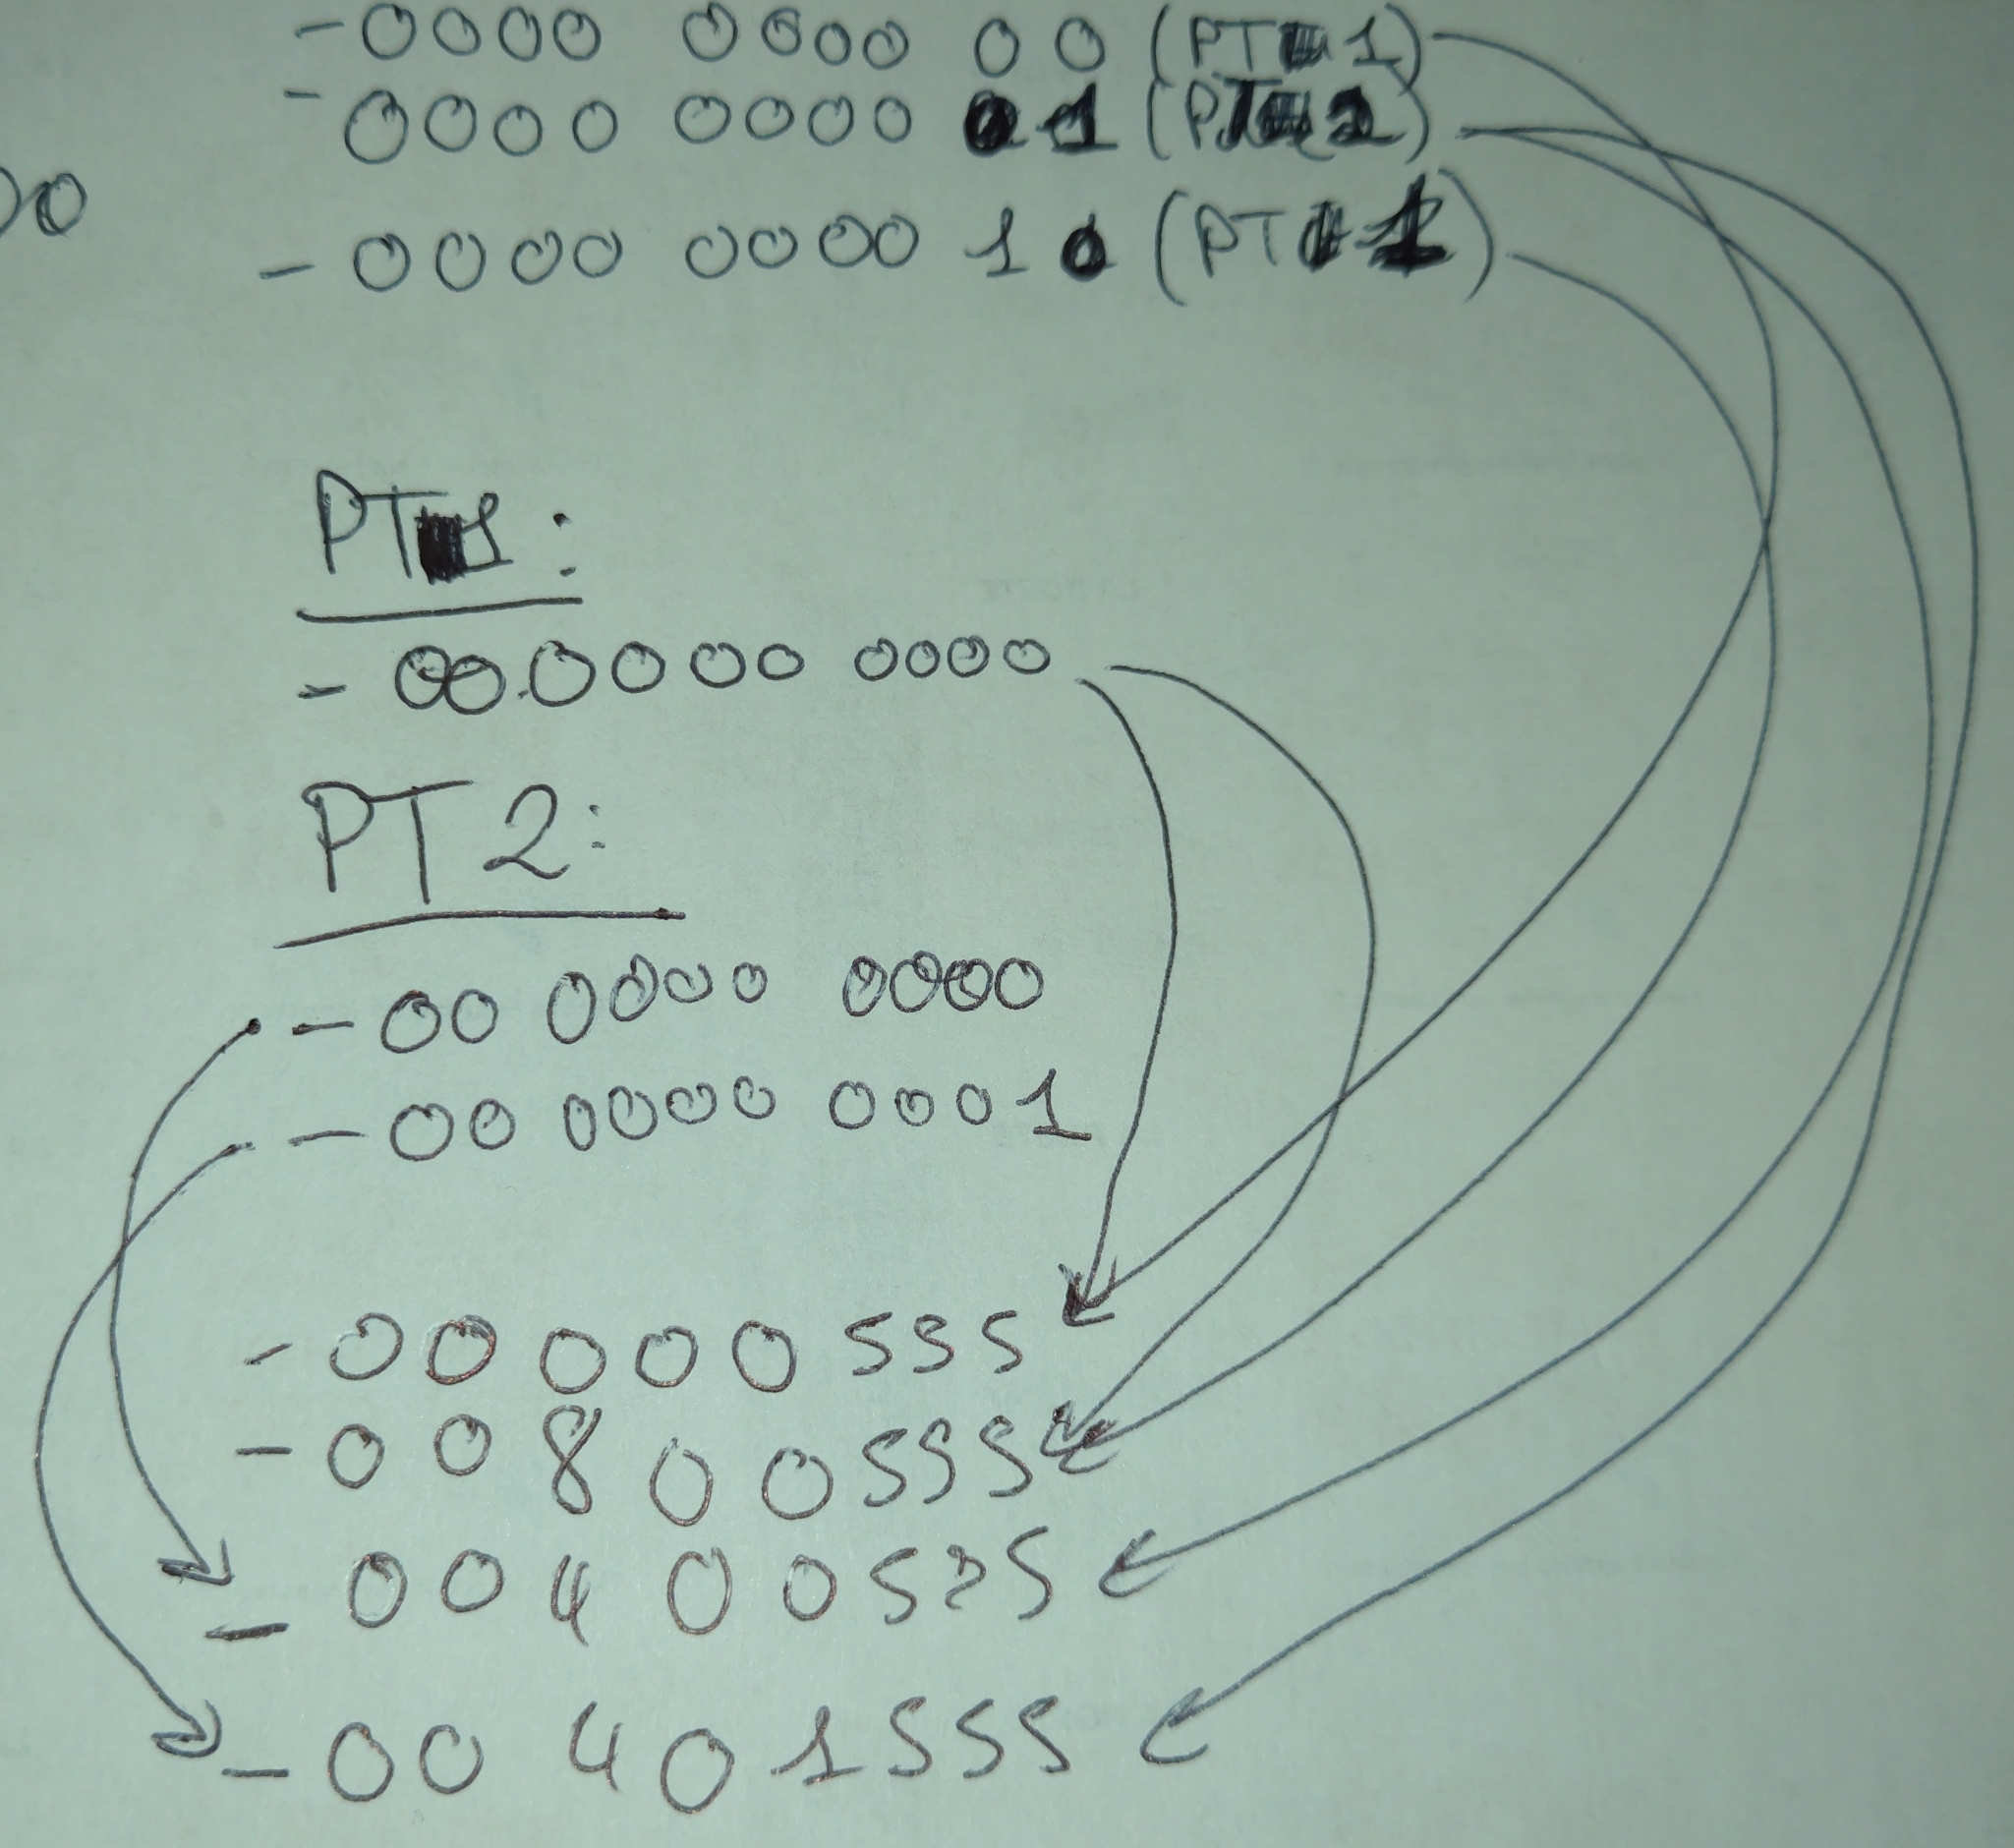 - 0000 0000 00 (PT 1)
- 0000 0000 01 (PT 2)
00
- 0000 0000 10 (PT 1)
PT 1:
- 00 0000 0000
PT 2:
- 00 0000 0000
- 00 0000 0001
- 00000555
- 00800555
- 00400555
- 00401555